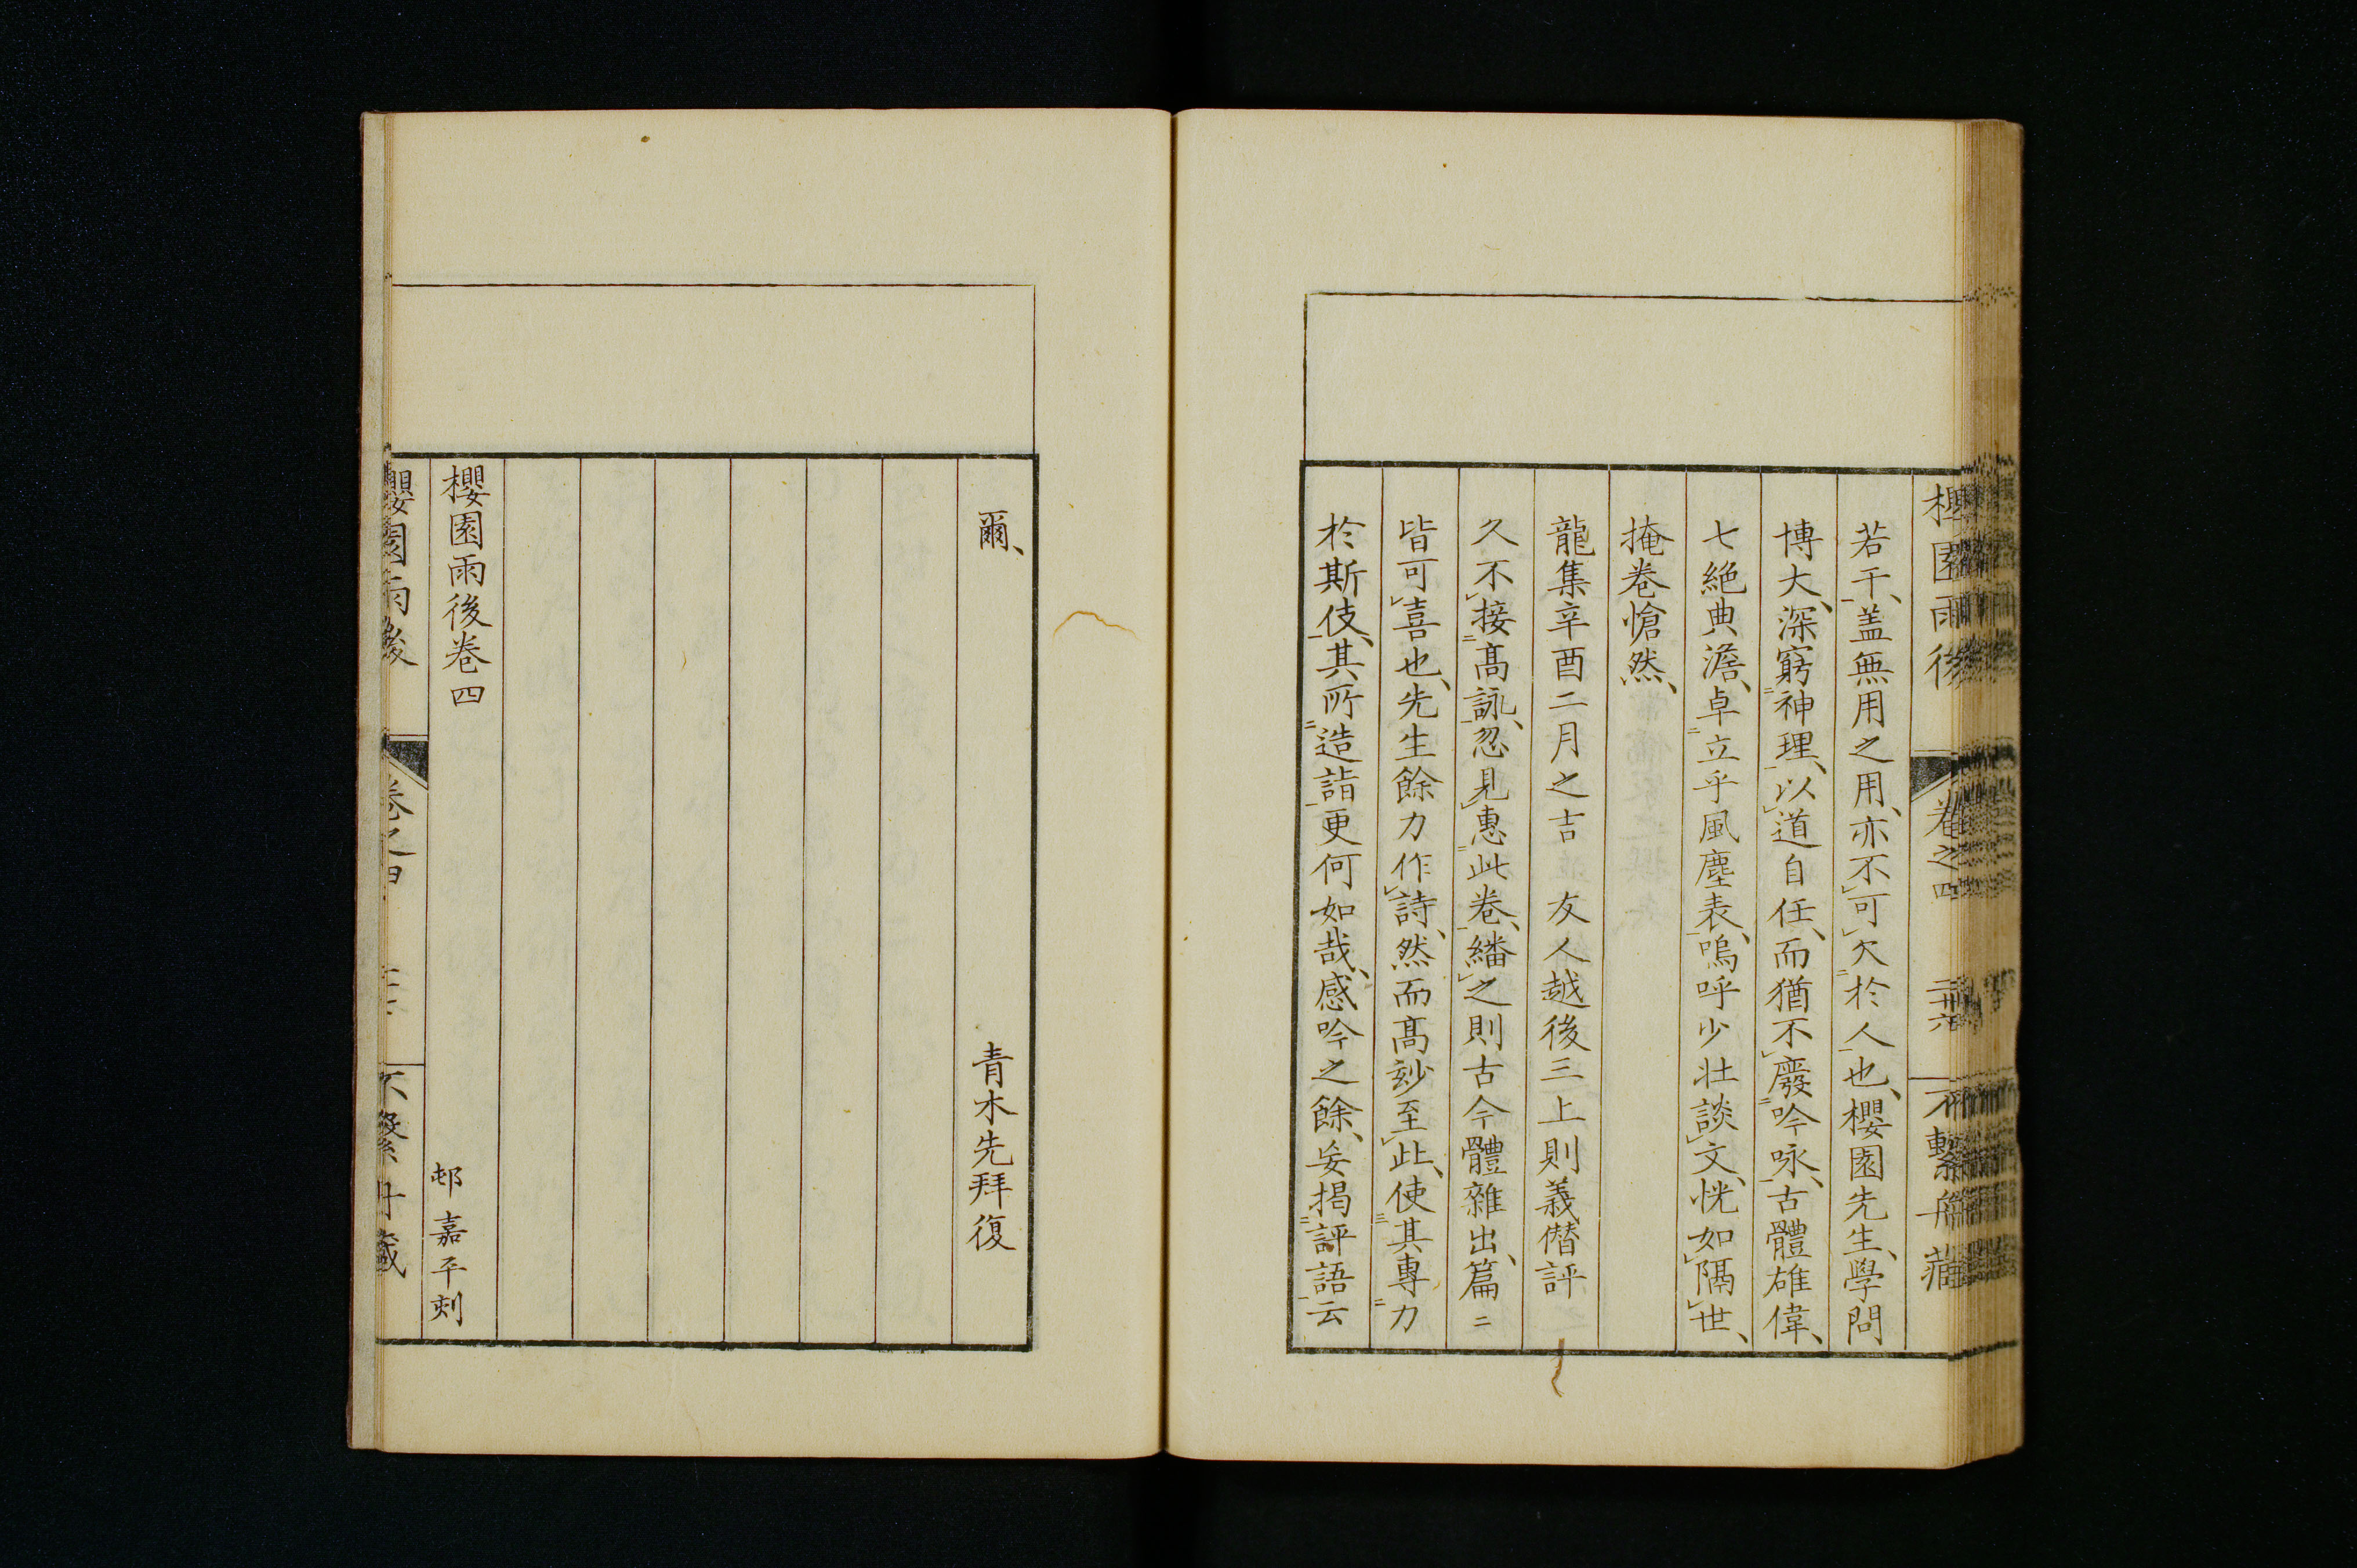 櫻園雨後 卷之四 三十六 不繫舟藏
若干、盖無用之用、亦不可欠於人也、櫻園先生、學問
博大、深窮神理、以道自任、而猶不廢吟咏、古體雄偉、
七絶典澹、卓立乎風塵表、嗚呼少壮談文、恍如隔世、
掩卷愴然、
龍集辛酉二月之吉 友人越後三上則義僭評
久不接髙詠、忽見惠此卷、繙之則古今體雜出、篇〻
皆可喜也、先生餘力作詩、然而髙玅至此、使其專力
於斯伎、其所造詣更何如哉、感吟之餘、妄揭評語云
爾、
青木先拜復
櫻園雨後卷四
邨嘉平刻
櫻園雨後 卷之四 不繫舟藏